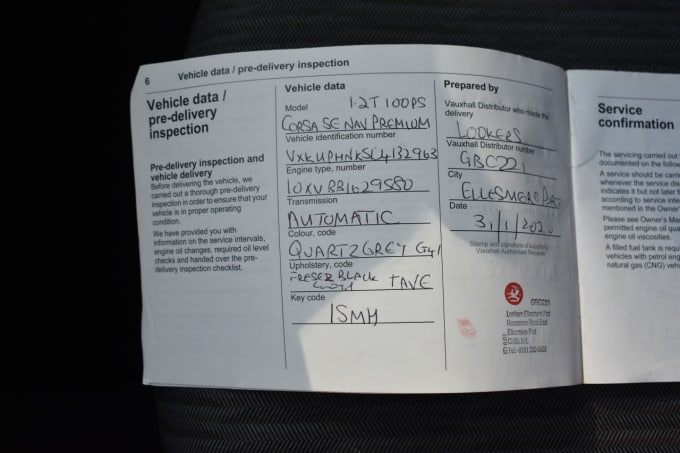 6 Vehicle data / pre-delivery inspection
Vehicle data /
pre-delivery
inspection
Pre-delivery inspection and
vehicle delivery
Before delivering the vehicle, we
carried out a thorough pre-delivery
inspection in order to ensure that your
vehicle is in proper operating
condition.
We have provided you with
information on the service intervals,
engine oil changes, required oil level
checks and handed over the pre-
delivery inspection checklist.
Vehicle data
Model 1.2T 100PS
CORSA SE NAV PREMIUM
Vehicle identification number
VXKUPHNKSL4132963
Engine type, number
10XVBB1629580
Transmission
AUTOMATIC
Colour, code
QUARTZ GREY G41
Upholstery, code
BLACK TAVE
Key code
1SMH
Prepared by
Vauxhall Distributor who made the
delivery
LOOKERS
Vauxhall Distributor number
GBC221
City
ELLESMERE PORT
Date
31/1/2020
Stamp and signature of supplying
Vauxhall Authorised Repairer
GBC221
Lookers Ellesmere Port
Rossmore Road East
Ellesmere Port
Service
confirmation
The servicing carried out
documented on the follow
A service should be carri
whenever the service dis
indicates it but not later t
according to service inte
mentioned in the Owner'
Please see Owner's Ma
permitted engine oil qua
engine oil viscosities.
A filled fuel tank is requ
vehicles with petrol eng
natural gas (CNG) vehi